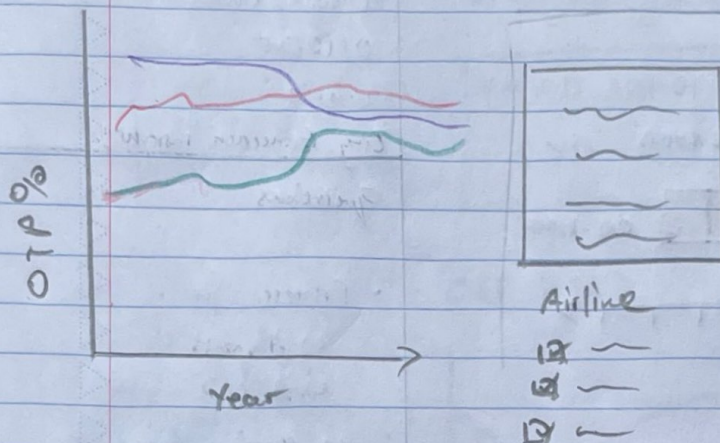 OTP %
Year
Airline